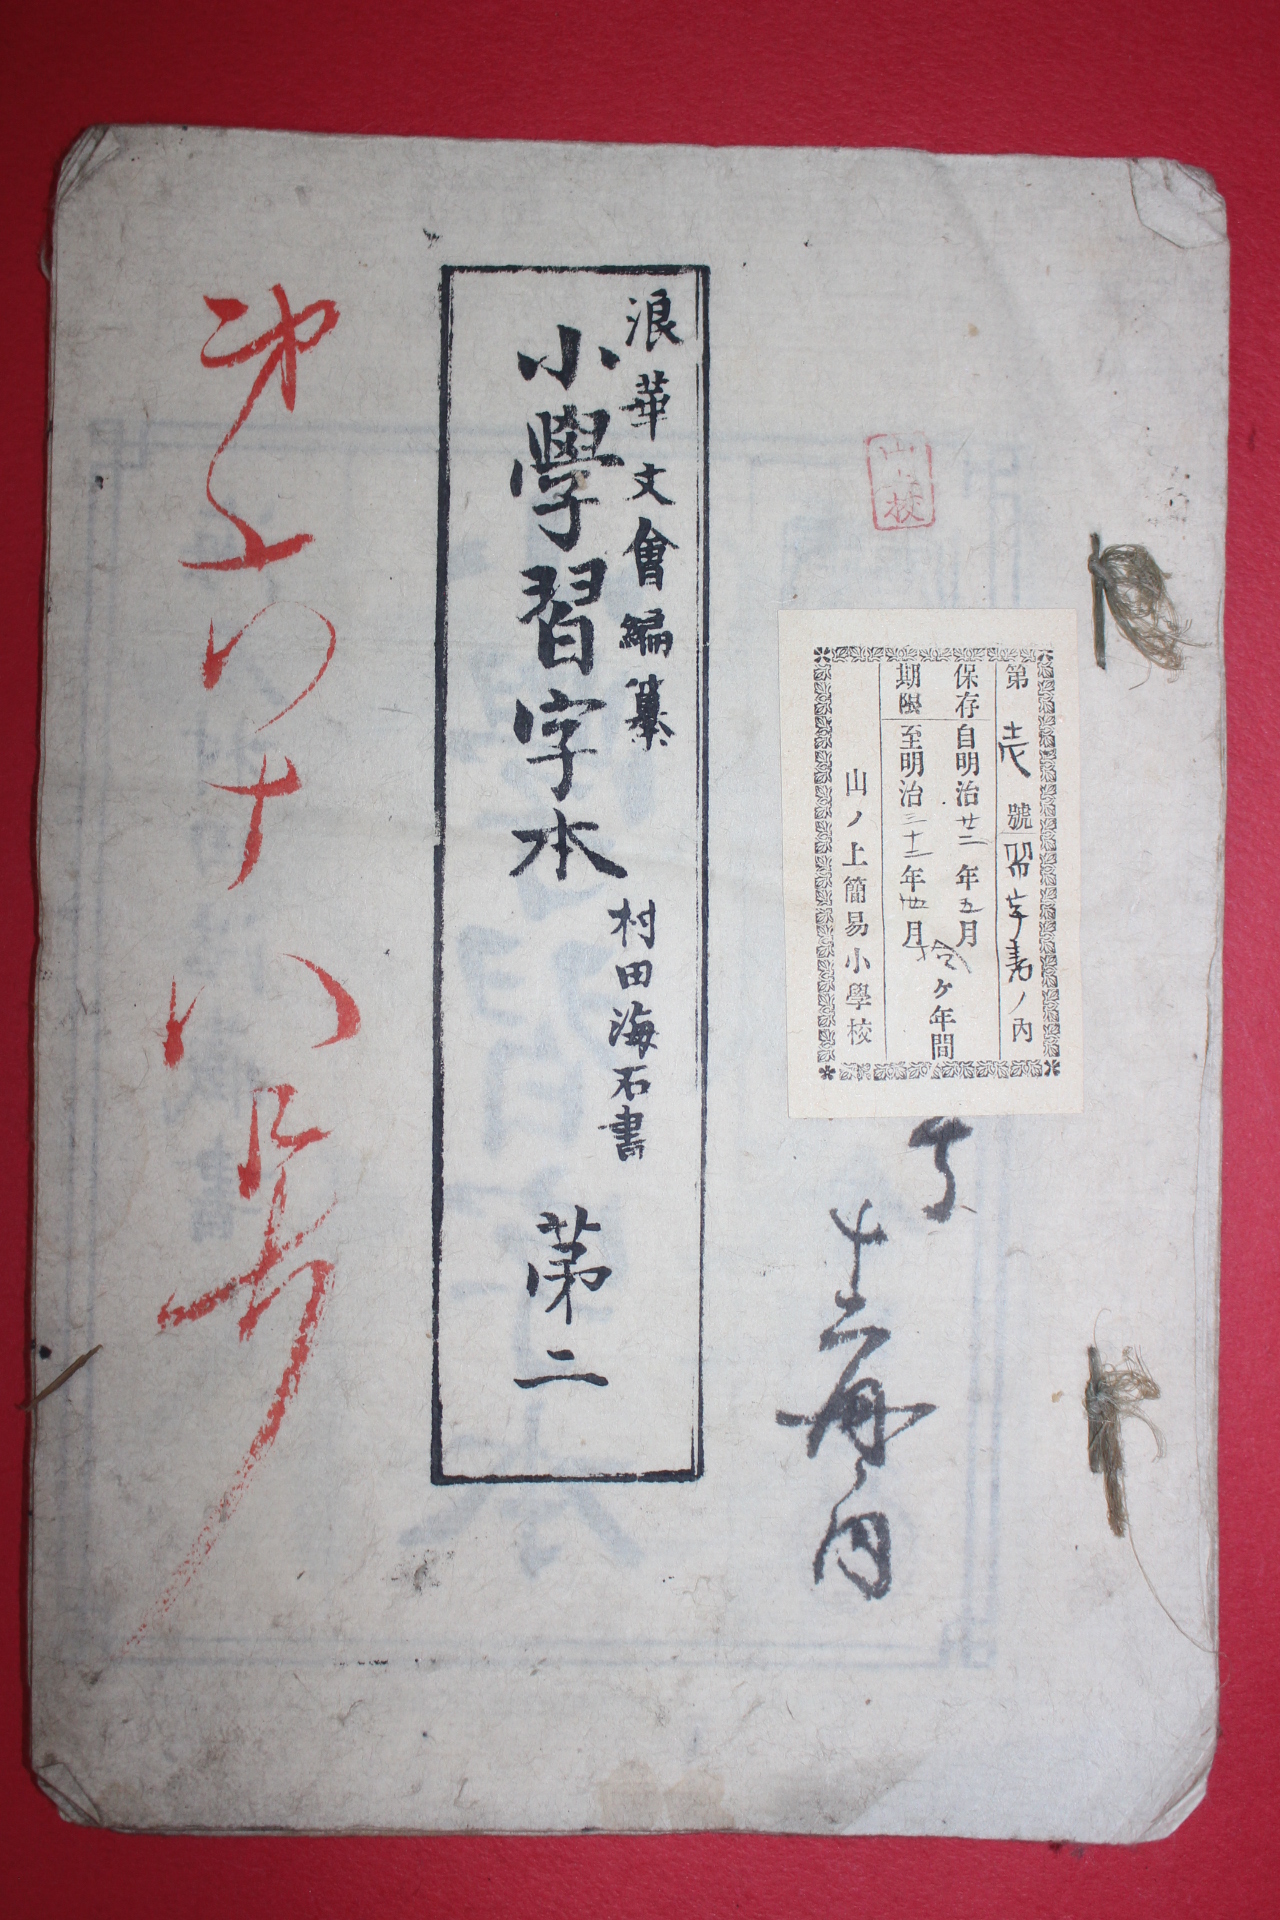 山校
第壱號習字書ノ內
保存期限
自明治廿二年五月
至明治三十二年四月
拾ヶ年間
山ノ上簡易小學校
十二冊ノ内
浪華文會編纂
小學習字本
村田海石書
第二
第上四十八号